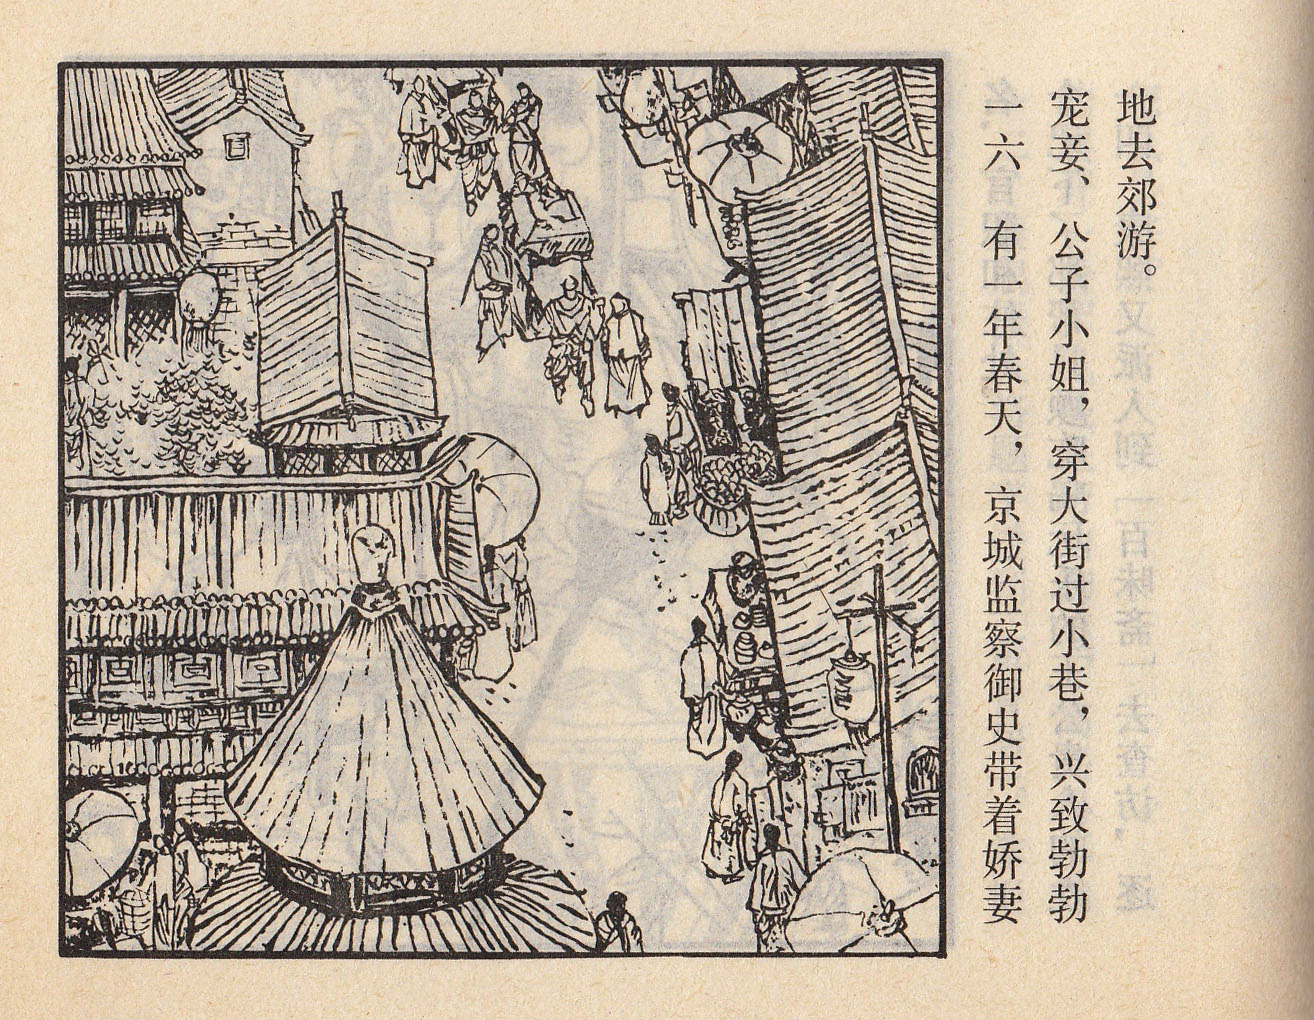 一六 有一年春天，京城监察御史带着娇妻
宠妾、公子小姐，穿大街过小巷，兴致勃勃
地去郊游。